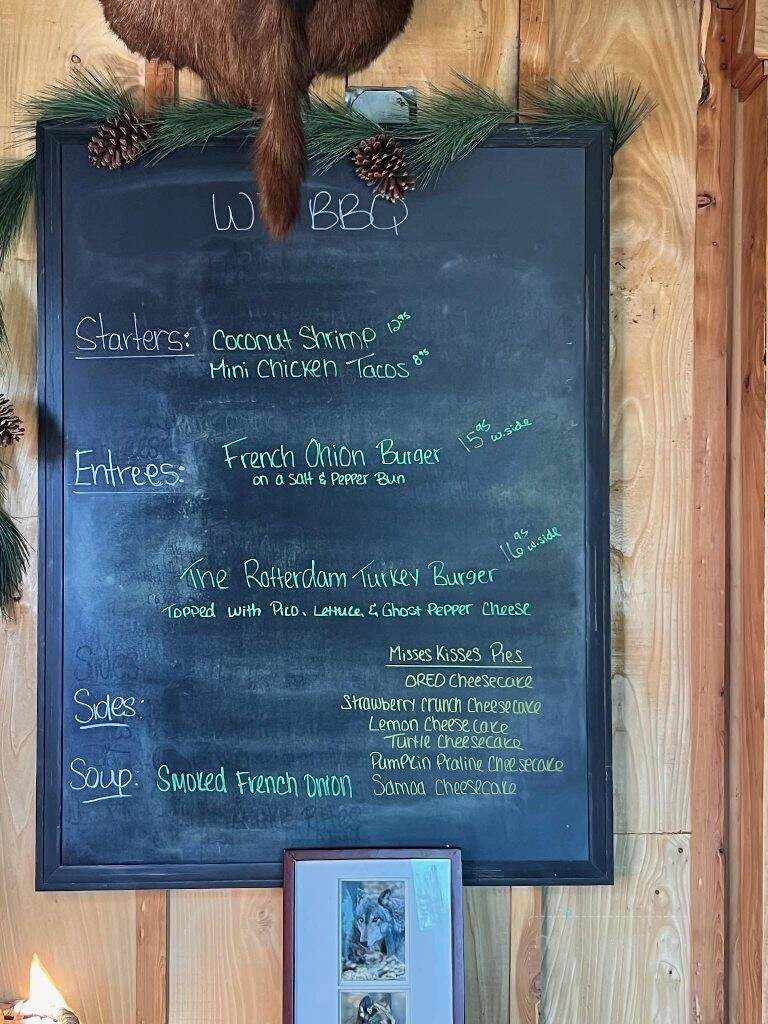 W BBQ
Starters: Coconut Shrimp 12.95
Mini Chicken Tacos 8.95
Entrees: French Onion Burger 15.95 w.side
on a Salt & Pepper Bun
The Rotterdam Turkey Burger 16.95 w.side
Topped with Pico, Lettuce, & Ghost Pepper Cheese
Misses Kisses Pies
OREO Cheesecake
Sides:
Strawberry Crunch Cheesecake
Lemon Cheesecake
Turtle Cheesecake
Pumpkin Praline Cheesecake
Soup: Smoked French Onion
Samoa Cheesecake